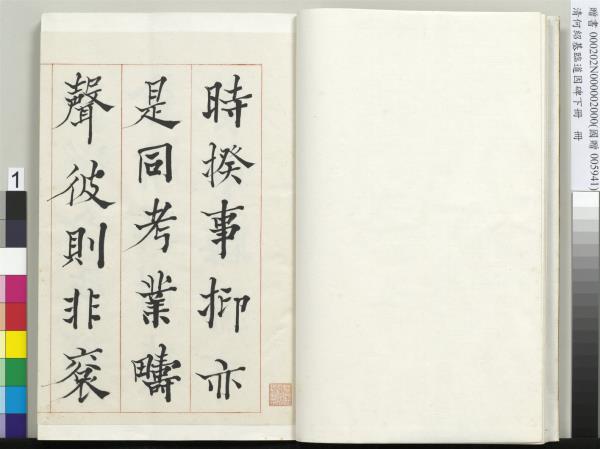 時揆事抑亦
是同考業疇
聲彼則非褒
贈書 000202N000002000(國贈 005941)
清何紹基臨道因碑下冊 冊
1